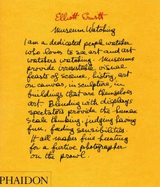 Elliott Erwitt
Museum Watching
I am a dedicated people watcher
who loves to see art and art
watchers watching. Museums
provide irresistible, visual
feasts of science, history, art
on canvas, in sculpture, in
buildings that are themselves
art. Blending with displays
spectators provide the human
scale thinking, judging, having
fun, fading sensibilities
It all makes fine feeding
for a furtive photographer
on the prowl.
PHAIDON